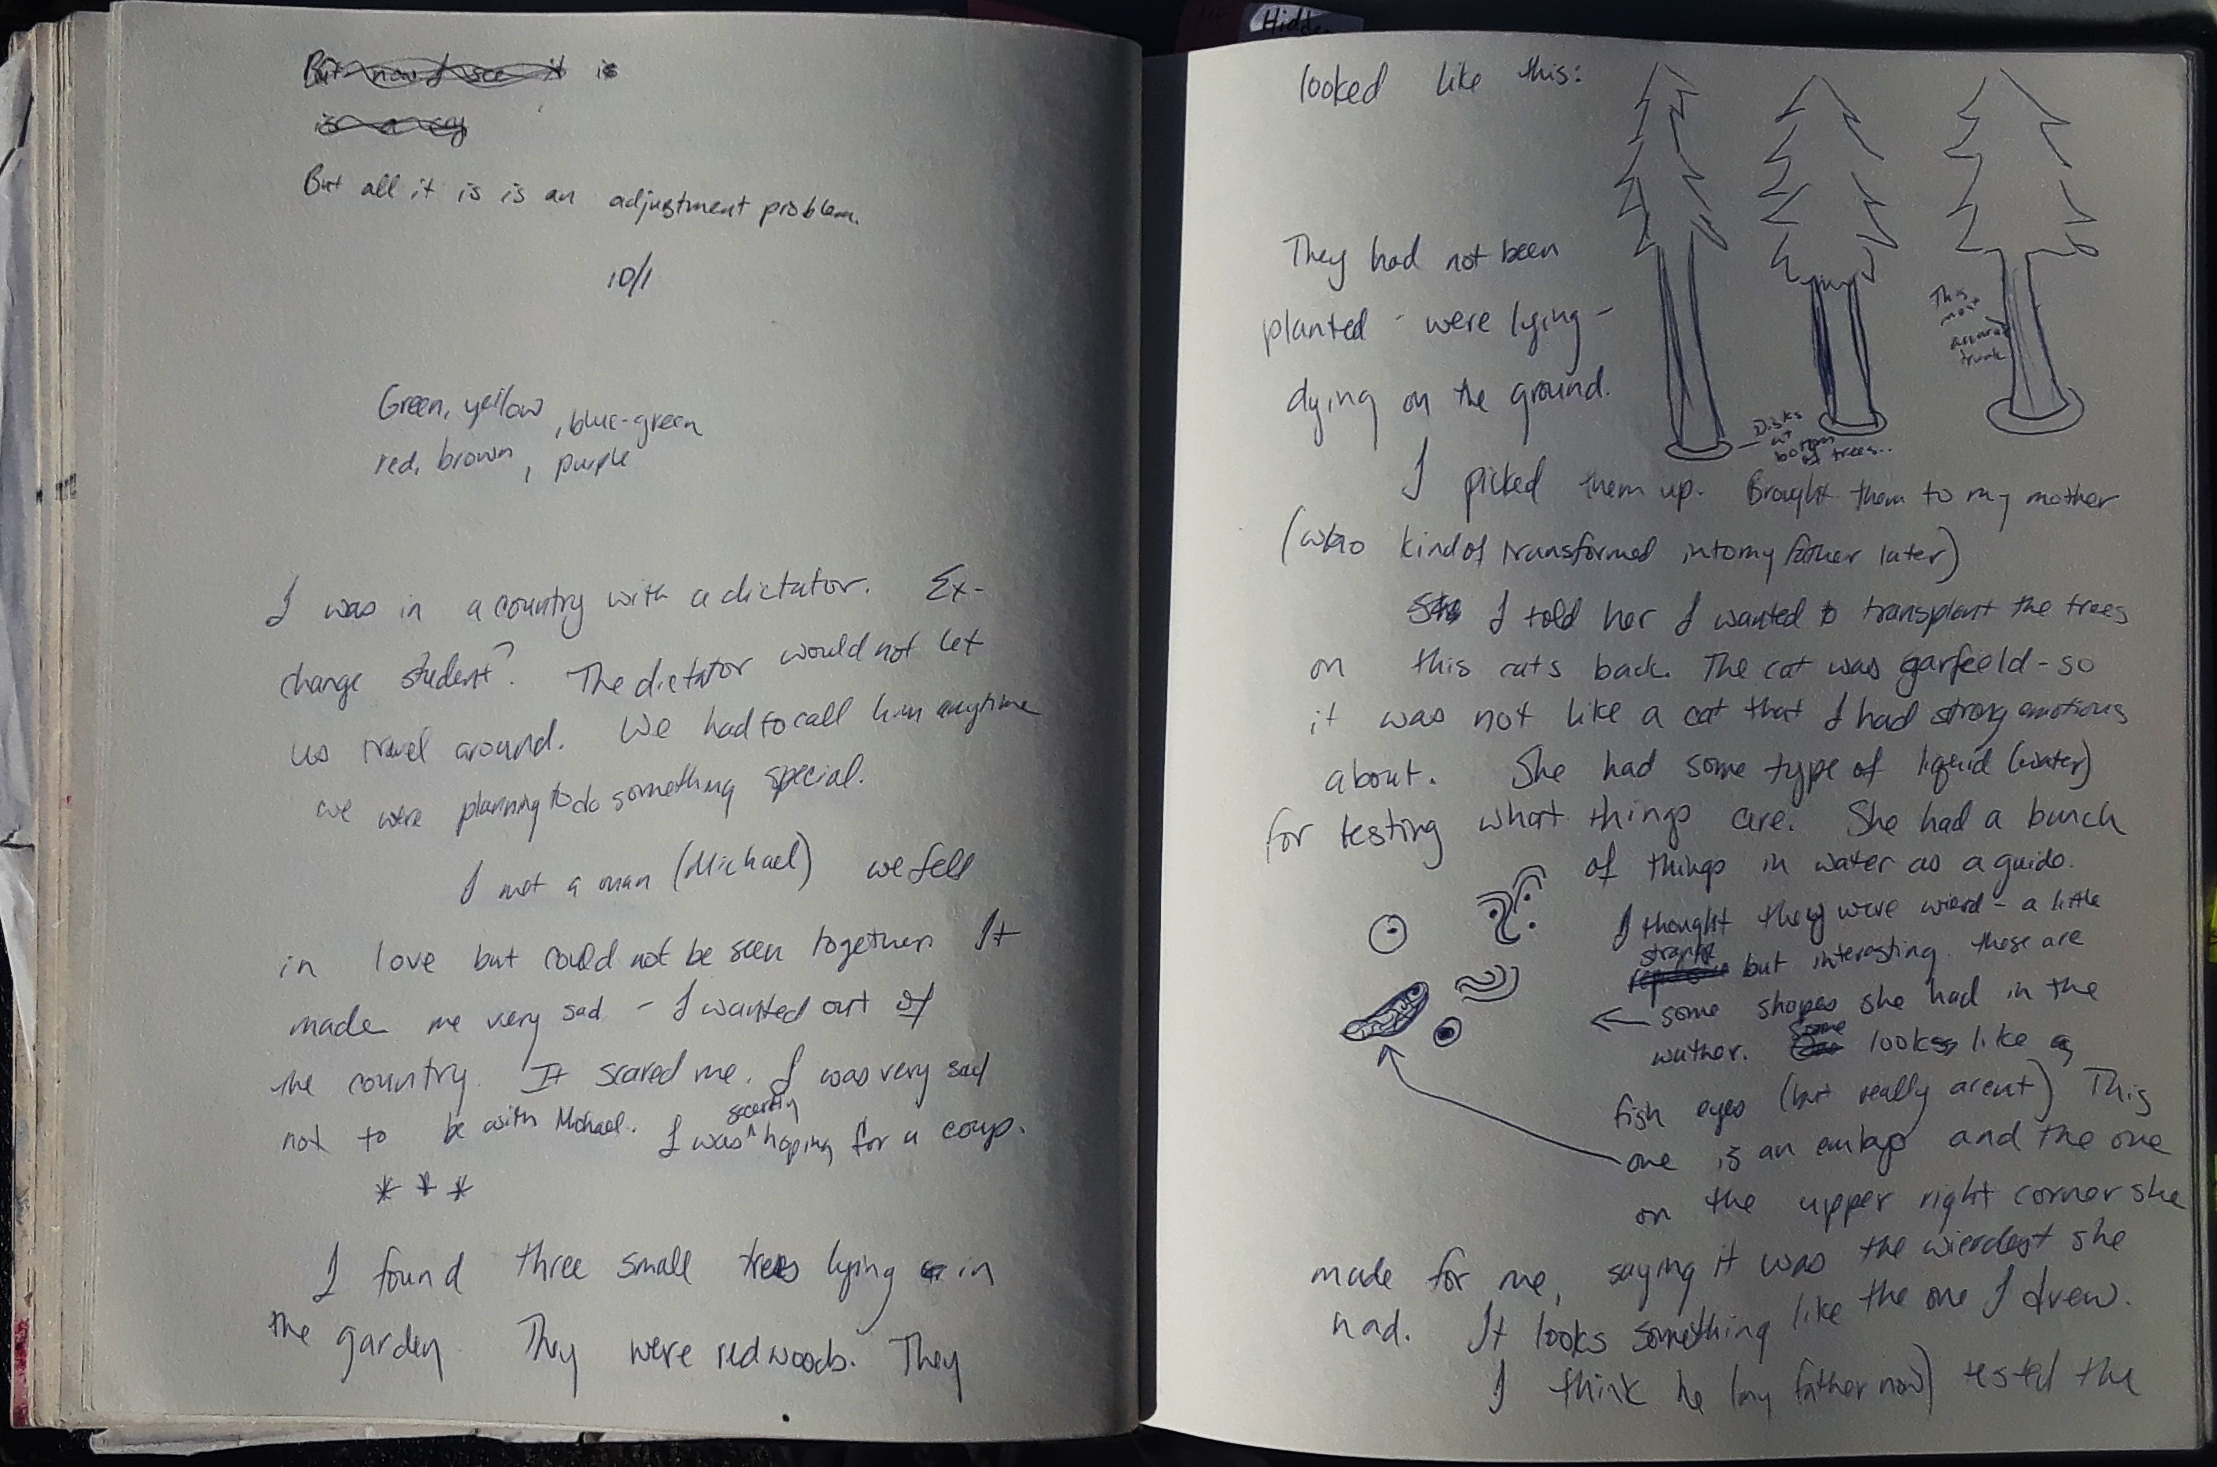 Hidden
But now I see it is
is a cry
But all it is is an adjustment problem.
10/1
Green, yellow, blue-green
red, brown, purple
I was in a country with a dictator. Ex-
change student? The dictator would not let
us travel around. We had to call him anytime
we were planning to do something special.
I met a man (Michael) we fell
in love but could not be seen together. It
made me very sad - I wanted out of
the country. It scared me. I was very sad
not to be with Michael. I was secretly hoping for a coup.
* * *
I found three small trees lying in
the garden. They were redwoods. They
looked like this:
They had not been
planted - were lying -
dying on the ground.
This
most
accurate
trunk
Disks
at
bottom
of trees...
I picked them up. Brought them to my mother
(who kind of transformed into my father later)
I told her I wanted to transplant the trees
on this cats back. The cat was garfeeld - so
it was not like a cat that I had strong emotions
about. She had some type of liquid (water)
for testing what things are. She had a bunch
of things in water as a guide.
I thought they were wierd - a little
strange but interesting. these are
some shapes she had in the
wather. Some looks like
fish eyes (but really arent) This
one is an embryo and the one
on the upper right corner she
made for me, saying it was the wierdest she
had. It looks something like the one I drew.
I think he (my father now) tested the